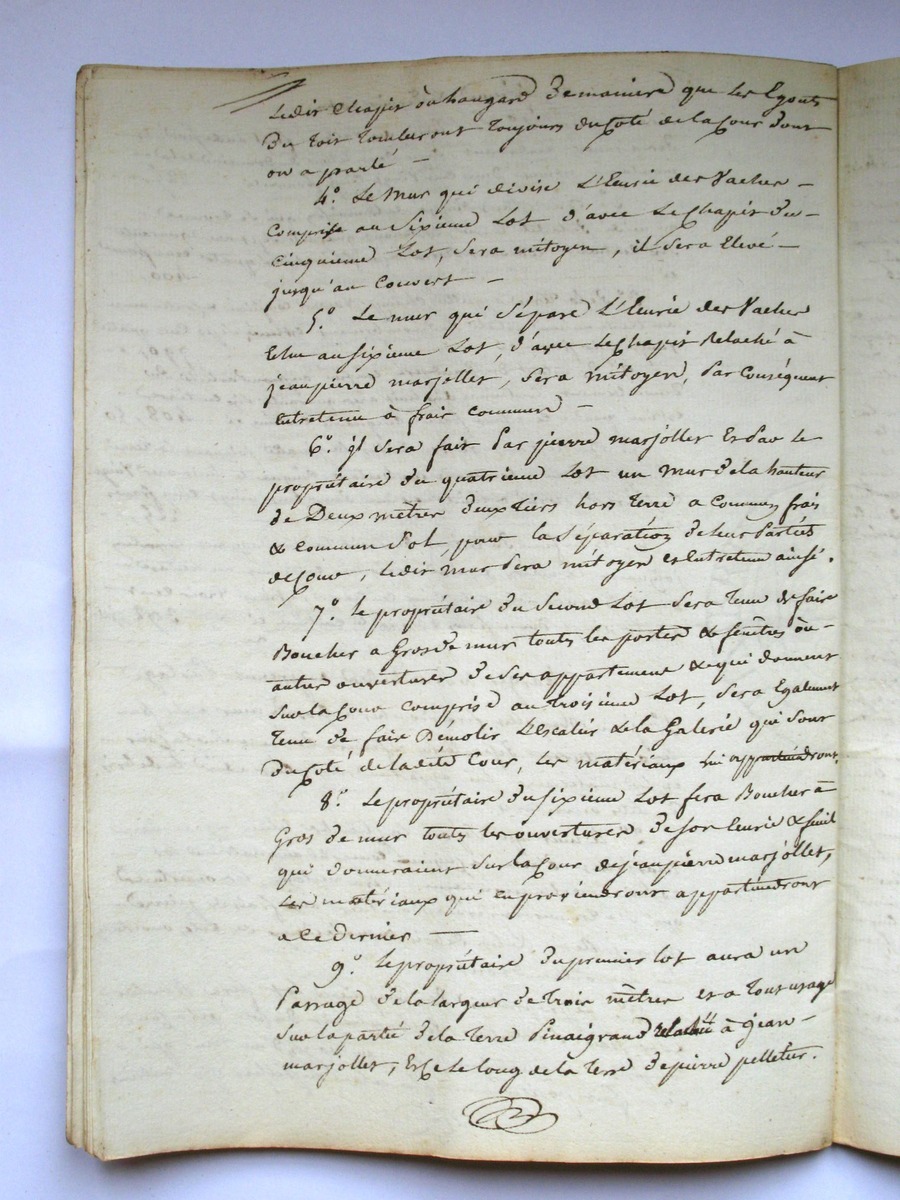 Ledit Chapit ou hangard de maniere que les Egouts
du toit tomberont toujours du Coté de la Cour dont
on a parlé —
4.° Le Mur qui divise L'Eurie des Vaches —
comprise au Sixieme Lot d'avec Le Chapit du —
cinquieme Lot, sera mitoyen, il sera Elevé —
jusqu'au Couvert —
5.° Le mur qui sépare L'Eurie des Vaches
Echu au sixieme Lot, d'avec le Chapit Relaché à
jean pierre marjollet, sera mitoyen, par Conséquent
Entretenu à frais Commun —
6.° il sera fait par pierre marjollet Et par Le
propriétaire du quatrieme Lot un mur de la hauteur
de Deux mètres deux tiers hors terre a Communs frais
& commun Sol, pour la séparation de leurs Partiés
de Cour, Ledit mur sera mitoyen et Entretenu ainsi.
7.° Le propriétaire du Second Lot sera tenu de faire
Boucher a Gros de mur touts les portes & fenêtres ou —
autres ouvertures de ses appartement & qui donnent
sur la Cour comprise au troisieme Lot, sera Egalement
tenu de faire Démolir L'Escalier & la Galerie qui sont
du Coté de ladite Cour, les matériaux lui appartiendront.
8.° Le propriétaire du sixieme Lot fera Boucher à
Gros de mur touts les ouvertures de son Eurie & fenil
qui donneraient sur la Cour de jean pierre marjollet,
Les matériaux qui en proviendront appartiendront
a ce Dernier —
9.° Le propriétaire du premier lot aura un
Passage de la largeur de trois mètres et a tout usage
sur la partie de la terre Pinaigrand relaché à jean —
marjollet, Et Ce Le long de la terre de pierre pelletier.